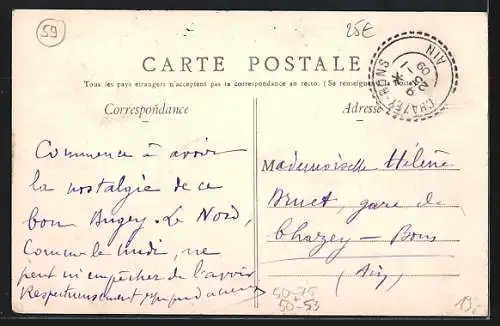 59
25€
CARTE POSTALE
Tous les pays étrangers n'acceptent pas la correspondance au recto. (Se renseigner à la Poste
CHAZEY-BONS
AIN
Correspondance
Adresse
Commence à avoir
la nostalgie de ce
bon Bugey. Le Nord,
Comme le midi, ne
peut m'empêcher de l'avoir
Respectueusement
Mademoiselle Hélène
Brucet, gare de
Chazey – Bons
(Ain)
50-75
50-59